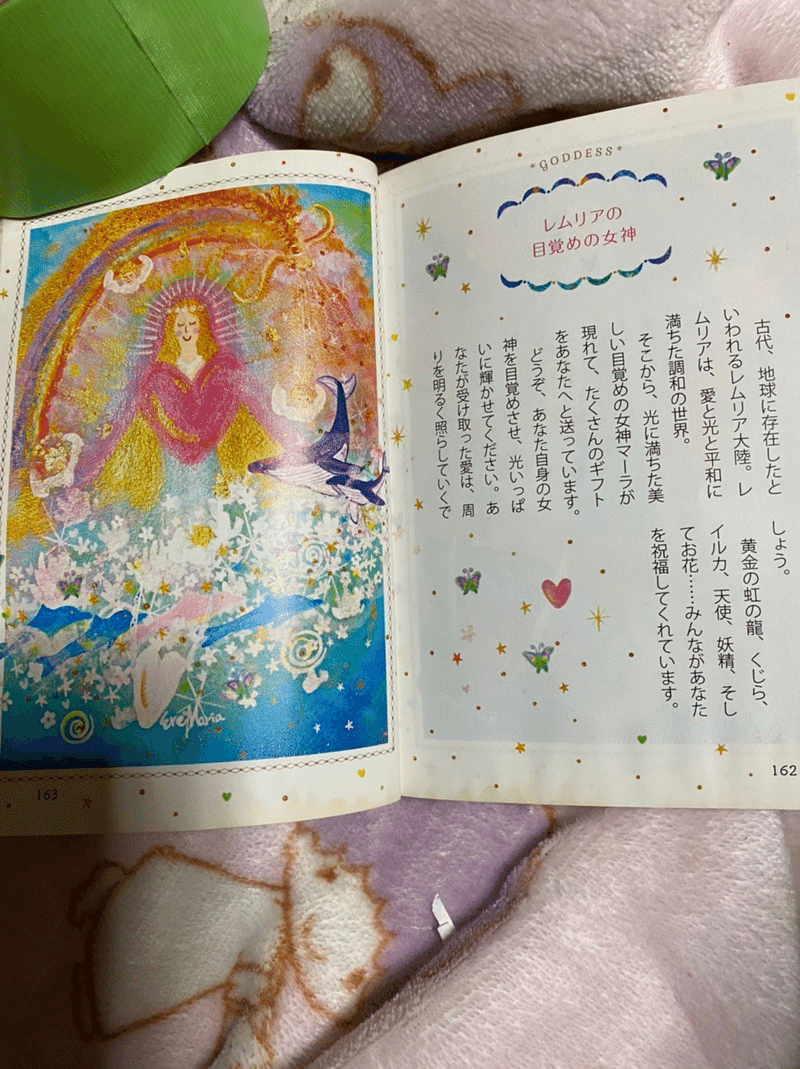 *GODDESS*
レムリアの
目覚めの女神
古代、地球に存在したと
いわれるレムリア大陸。レ
ムリアは、愛と光と平和に
満ちた調和の世界。
そこから、光に満ちた美
しい目覚めの女神マーラが
現れて、たくさんのギフト
をあなたへと送っています。
どうぞ、あなた自身の女
神を目覚めさせ、光いっぱ
いに輝かせてください。あ
なたが受け取った愛は、周
りを明るく照らしていくで
しょう。
黄金の虹の龍、くじら、
イルカ、天使、妖精、そし
てお花……みんながあなた
を祝福してくれています。
162
EveMaria
163